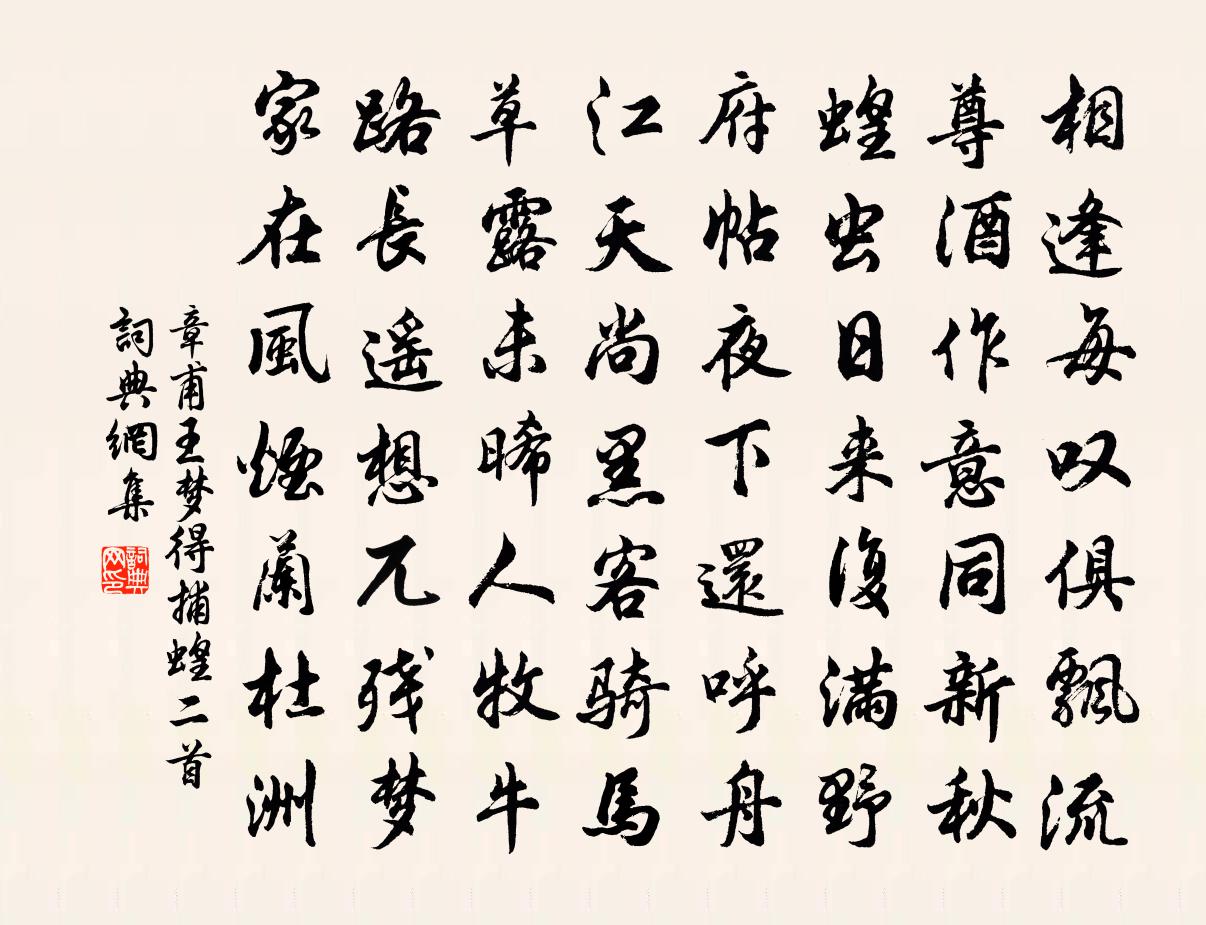 相逢每叹俱飄流
尊酒作意同新秋
蝗虫日来復满野
府帖夜下還呼舟
江天尚黑客骑馬
草露未晞人牧牛
路長遥想兀残梦
家在風煙蘭杜洲
章甫王梦得捕蝗二首
詞典網集
詞典网印